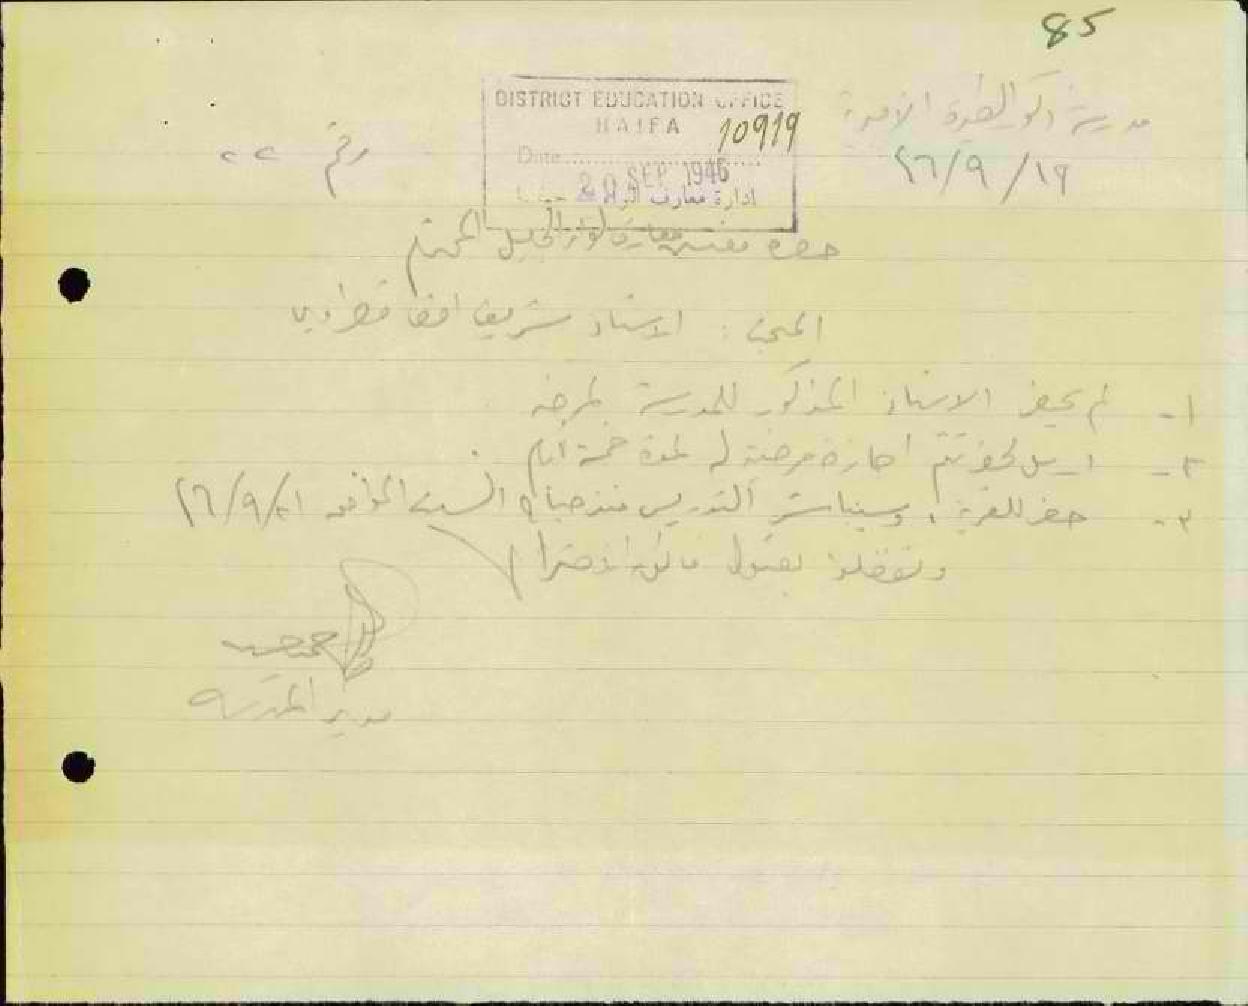 85
مدرسة ذكور الطيرة الأميرية
DISTRICT EDUCATION OFFICE
HAIFA
10919
رقم ٢٢
١٩/٩/٤٦
Date
20 SEP 1946
ادارة معارف
حضرة مفتش معارف لواء الجليل المحترم
المبحث : الاستاذ شريف افندي
١- لم يحضر الاستاذ المذكور للمدرسة لمرضه
٢- ارسل لحضرتكم اجازة مرضية له لمدة خمسة ايام
٣- حضر للقرية، وسيباشر التدريس منذ صباح السبت الموافق ٢١/٩/٤٦
وتفضلوا بقبول فائق احترامي
مدير المدرسة